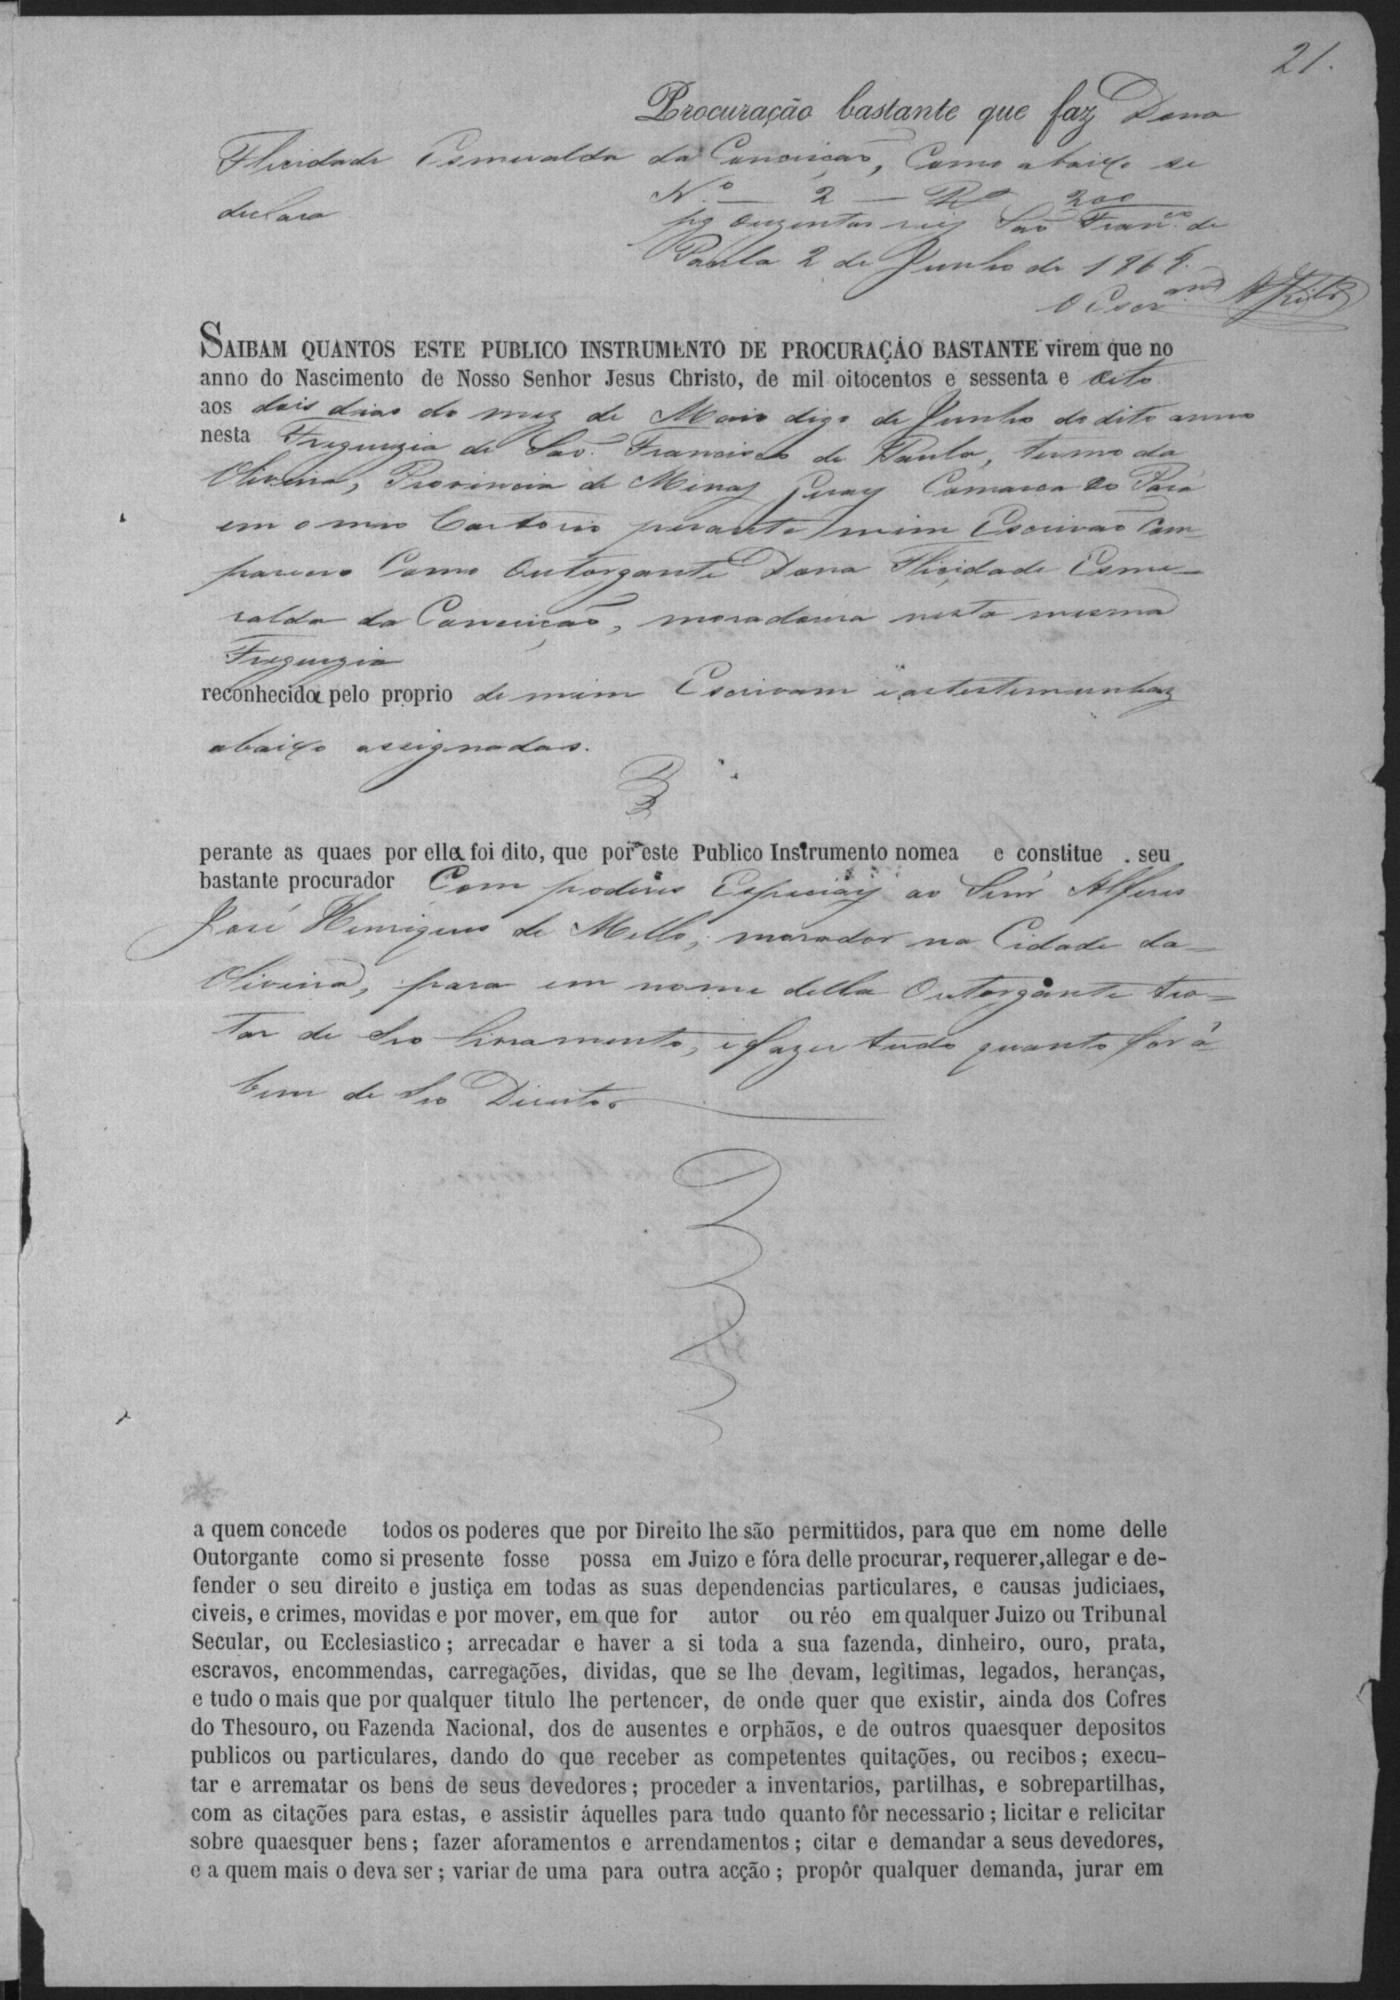 21.
Procuração bastante que faz Dona
Flicidade Esmeralda da Conceição, Como abaixo se
declara
N.º — 2 — Rs 200
pg duzentos reis São Fran.co de
Paula 2 de Junho de 1868.
O Escr.am
SAIBAM QUANTOS ESTE PUBLICO INSTRUMENTO DE PROCURAÇÃO BASTANTE virem que no
anno do Nascimento de Nosso Senhor Jesus Christo, de mil oitocentos e sessenta e oito
aos dois dias do mez de Maio digo de Junho do dito anno
nesta Freguezia de São Francisco de Paula, termo da
Oliveira, Provincia de Minas Geraes Comarca do Pará
em o meo Cartorio perante mim Escrivão Com-
pareceo Como Outorgante Dona Flicidade Esme-
ralda da Conceição, moradoura nesta mesma
Freguezia
reconhecida pelo proprio de mim Escrivam e as testemunhaz
abaixo assignadas.
perante as quaes por ella foi dito, que por este Publico Instrumento nomea e constitue seu
bastante procurador Com poderes Especiaes ao Senr Alferes
José Henriques de Mello, morador na Cidade da
Oliveira, para em nome della Outorgante tra-
tar de seo livramento, e fazer tudo quanto for á
bem de seo Direito
a quem concede todos os poderes que por Direito lhe são permittidos, para que em nome delle
Outorgante como si presente fosse possa em Juizo e fóra delle procurar, requerer, allegar e de-
fender o seu direito e justiça em todas as suas dependencias particulares, e causas judiciaes,
civeis, e crimes, movidas e por mover, em que for autor ou réo em qualquer Juizo ou Tribunal
Secular, ou Ecclesiastico ; arrecadar e haver a si toda a sua fazenda, dinheiro, ouro, prata,
escravos, encommendas, carregações, dividas, que se lhe devam, legitimas, legados, heranças,
e tudo o mais que por qualquer titulo lhe pertencer, de onde quer que existir, ainda dos Cofres
do Thesouro, ou Fazenda Nacional, dos de ausentes e orphãos, e de outros quaesquer depositos
publicos ou particulares, dando do que receber as competentes quitações, ou recibos ; execu-
tar e arrematar os bens de seus devedores ; proceder a inventarios, partilhas, e sobrepartilhas,
com as citações para estas, e assistir áquelles para tudo quanto fôr necessario ; licitar e relicitar
sobre quaesquer bens ; fazer aforamentos e arrendamentos ; citar e demandar a seus devedores,
e a quem mais o deva ser ; variar de uma para outra acção ; propôr qualquer demanda, jurar em